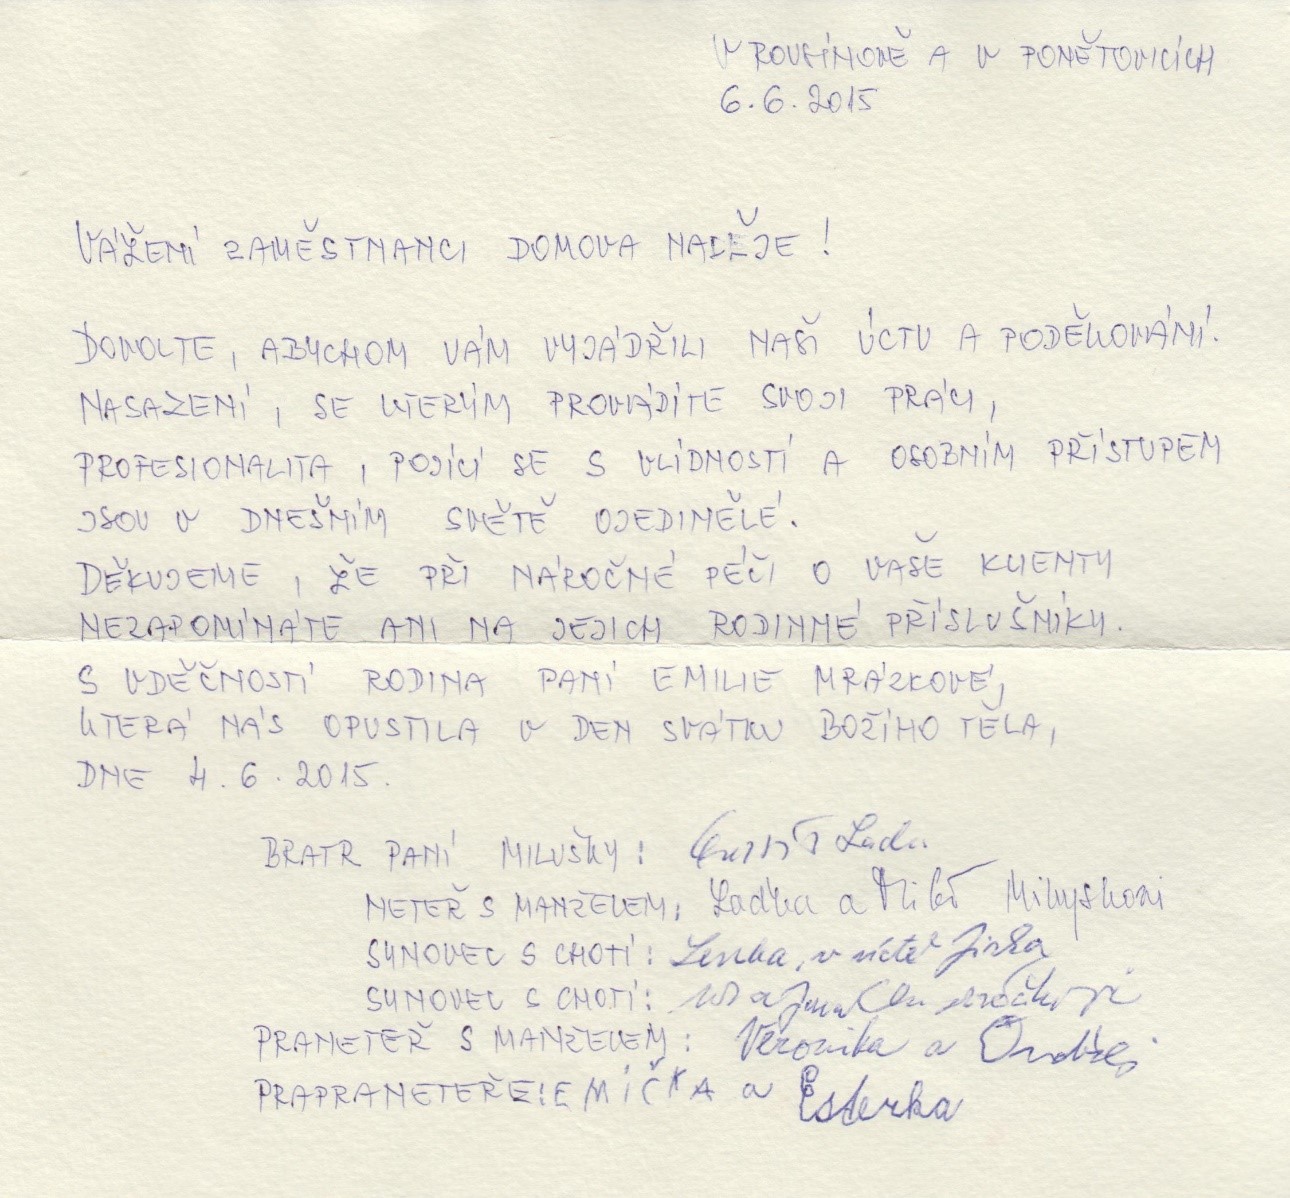 V ROUSÍNOVĚ A V PONĚTOVICÍCH
6.6.2015
VÁŽENÍ ZAMĚSTNANCI DOMOVA NADĚJE!
DOVOLTE, ABYCHOM VÁM VYJÁDŘILI NAŠÍ ÚCTU A PODĚKOVÁNÍ.
NASAZENÍ, SE KTERÝM PROVÁDÍTE SVOJI PRÁCI,
PROFESIONALITA, POJÍCÍ SE S VLÍDNOSTÍ A OSOBNÍM PŘÍSTUPEM
JSOU V DNEŠNÍM SVĚTĚ OJEDINĚLÉ.
DĚKUJEME, ŽE PŘI NÁROČNÉ PÉČI O VAŠE KLIENTY
NEZAPOMÍNÁTE ANI NA JEJICH RODINNÉ PŘÍSLUŠNÍKY.
S VDĚČNOSTÍ RODINA PANÍ EMILIE MRÁZKOVÉ,
KTERÁ NÁS OPUSTILA V DEN SVÁTKU BOŽÍHO TĚLA,
DNE 4.6.2015.
BRATR PANÍ MILUŠKY: Lada
NETEŘ S MANŽELEM: Ladka a Miloš
SYNOVEC S CHOTÍ: Lenka,
SYNOVEC S CHOTÍ: a Jana
PRANETEŘ S MANŽELEM: Veronika a Ondřej
PRAPRANETEŘE: EMIČKA a Esterka